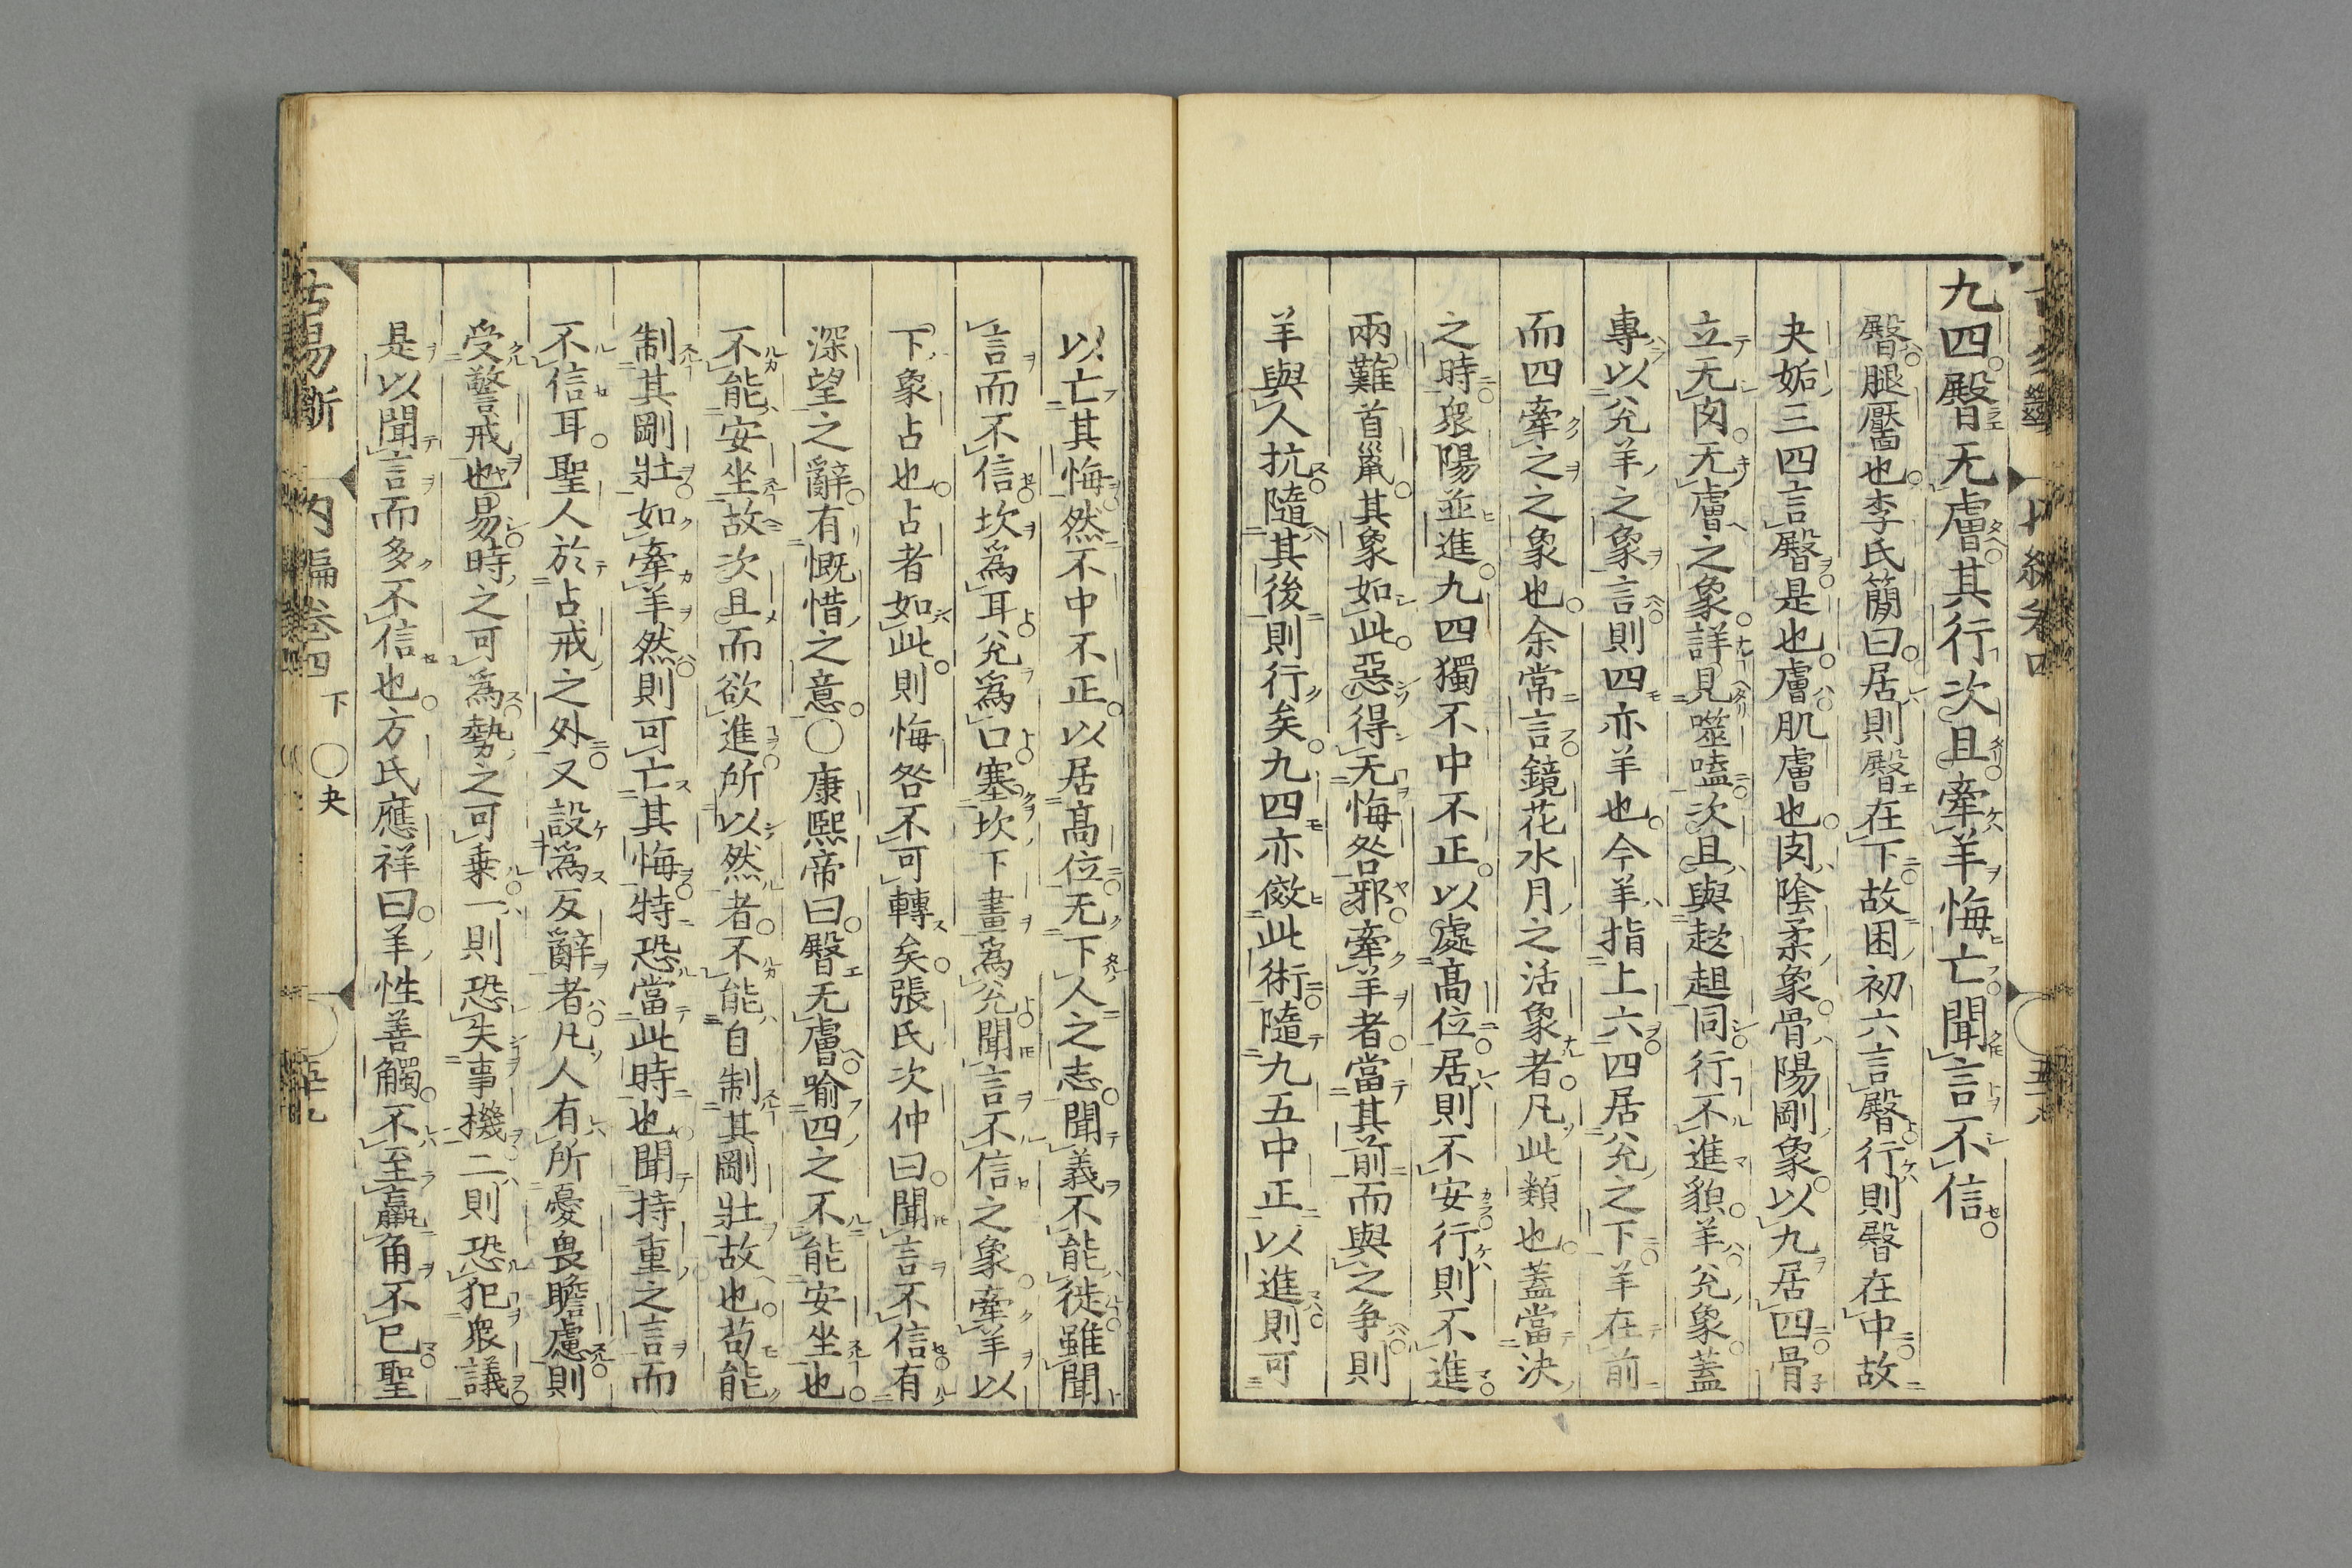 九四臀无膚其行次且牽羊悔亡聞言不信
臀腿壓也李氏簡曰居則臀在下故困初六言臀行則臀在中故
夬姤三四言臀是也膚肌膚也肉陰柔象骨陽剛象以九居四骨
立无肉无膚之象詳見噬嗑次且與趑趄同行不進貌羊兊象蓋
專以兊羊之象言則四亦羊也今羊指上六四居兊之下羊在前
而四牽之之象也余常言鏡花水月之活象者凡此類也蓋當決
之時衆陽並進九四獨不中不正以處高位居則不安行則不進
兩難首鼠其象如此惡得无悔咎邪牽羊者當其前而與之爭則
羊與人抗隨其後則行矣九四亦傚此術隨九五中正以進則可
以亡其悔然不中不正以居高位无下人之志聞義不能徙雖聞
言而不信坎爲耳兊爲口塞坎下畫爲兊聞言不信之象牽羊以
下象占也占者如此則悔咎不可轉矣張氏次仲曰聞言不信有
深望之辭有慨惜之意〇康熙帝曰臀无膚喻四之不能安坐也
不能安坐故次且而欲進所以然者不能自制其剛壯故也苟能
制其剛壯如牽羊然則可亡其悔特恐當此時也聞持重之言而
不信耳聖人於占戒之外又設爲反辭者凡人有所憂畏瞻慮則
受警戒也易時之可爲勢之可乗一則恐失事機二則恐犯衆議
是以聞言而多不信也方氏應祥曰羊性善觸不至羸角不已聖
古易斷 內編卷四 下 〇夬 五十九